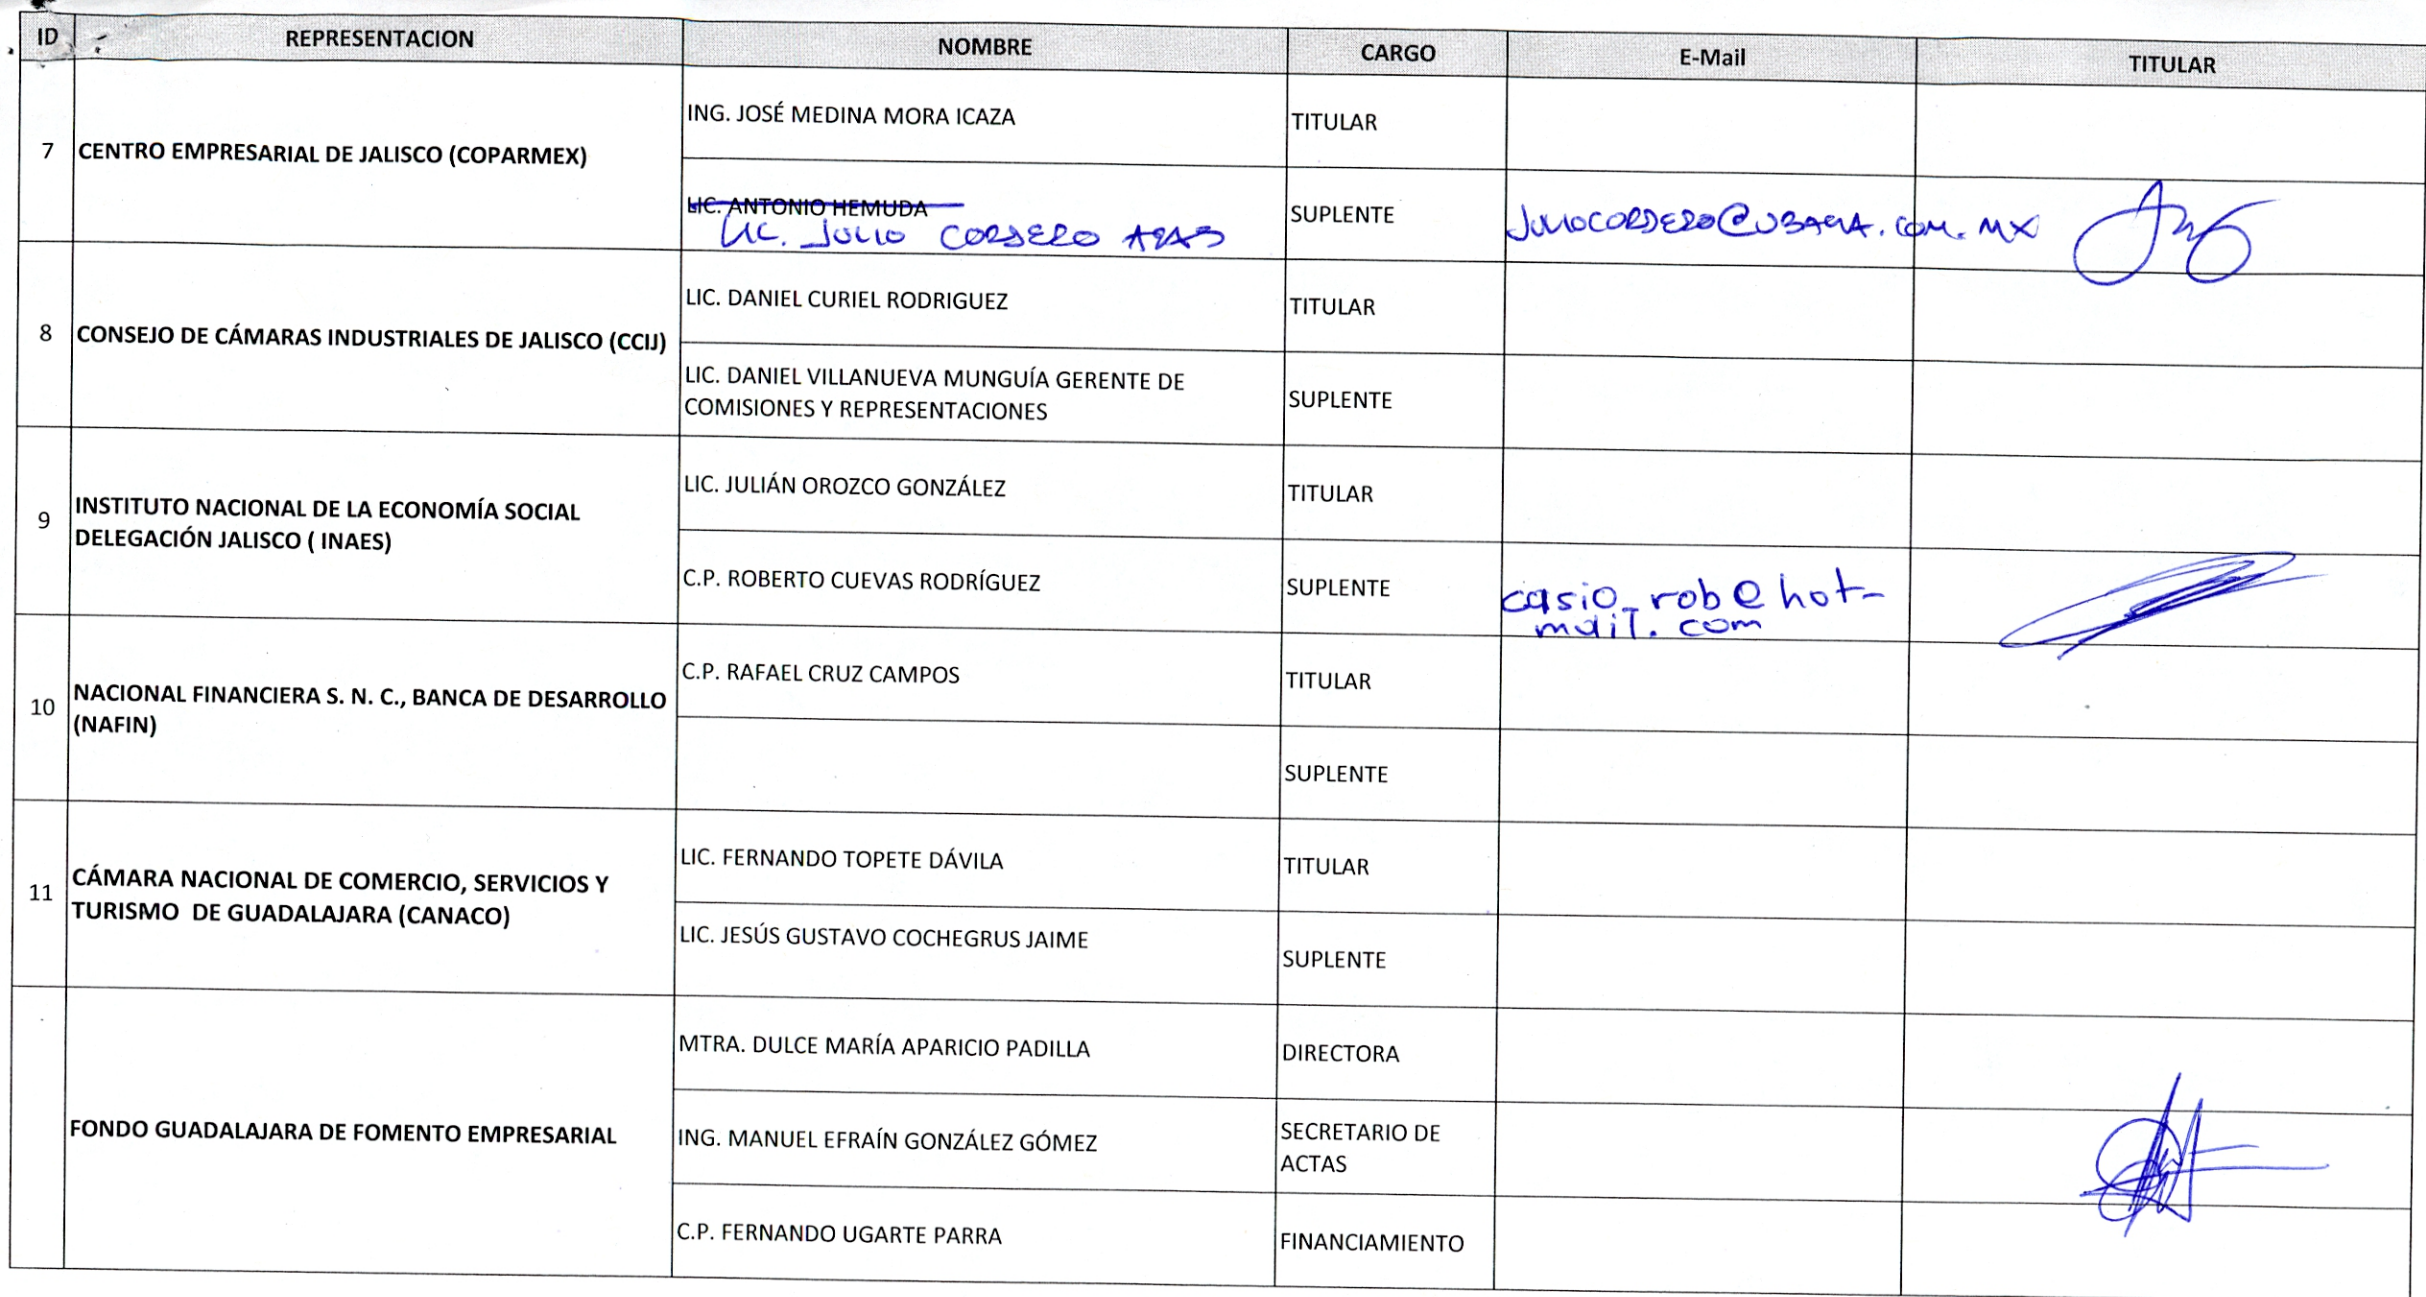 ID REPRESENTACION NOMBRE CARGO E-Mail TITULAR
7 CENTRO EMPRESARIAL DE JALISCO (COPARMEX)
ING. JOSÉ MEDINA MORA ICAZA TITULAR
LIC. ANTONIO HEMUDA SUPLENTE
LIC. JULIO CORDERO
8 CONSEJO DE CÁMARAS INDUSTRIALES DE JALISCO (CCIJ)
LIC. DANIEL CURIEL RODRIGUEZ TITULAR
LIC. DANIEL VILLANUEVA MUNGUÍA GERENTE DE
COMISIONES Y REPRESENTACIONES SUPLENTE
9 INSTITUTO NACIONAL DE LA ECONOMÍA SOCIAL
DELEGACIÓN JALISCO ( INAES)
LIC. JULIÁN OROZCO GONZÁLEZ TITULAR
C.P. ROBERTO CUEVAS RODRÍGUEZ SUPLENTE casio_rob@hot-
mail.com
10 NACIONAL FINANCIERA S. N. C., BANCA DE DESARROLLO
(NAFIN)
C.P. RAFAEL CRUZ CAMPOS TITULAR
SUPLENTE
11 CÁMARA NACIONAL DE COMERCIO, SERVICIOS Y
TURISMO DE GUADALAJARA (CANACO)
LIC. FERNANDO TOPETE DÁVILA TITULAR
LIC. JESÚS GUSTAVO COCHEGRUS JAIME SUPLENTE
FONDO GUADALAJARA DE FOMENTO EMPRESARIAL
MTRA. DULCE MARÍA APARICIO PADILLA DIRECTORA
ING. MANUEL EFRAÍN GONZÁLEZ GÓMEZ SECRETARIO DE
ACTAS
C.P. FERNANDO UGARTE PARRA FINANCIAMIENTO